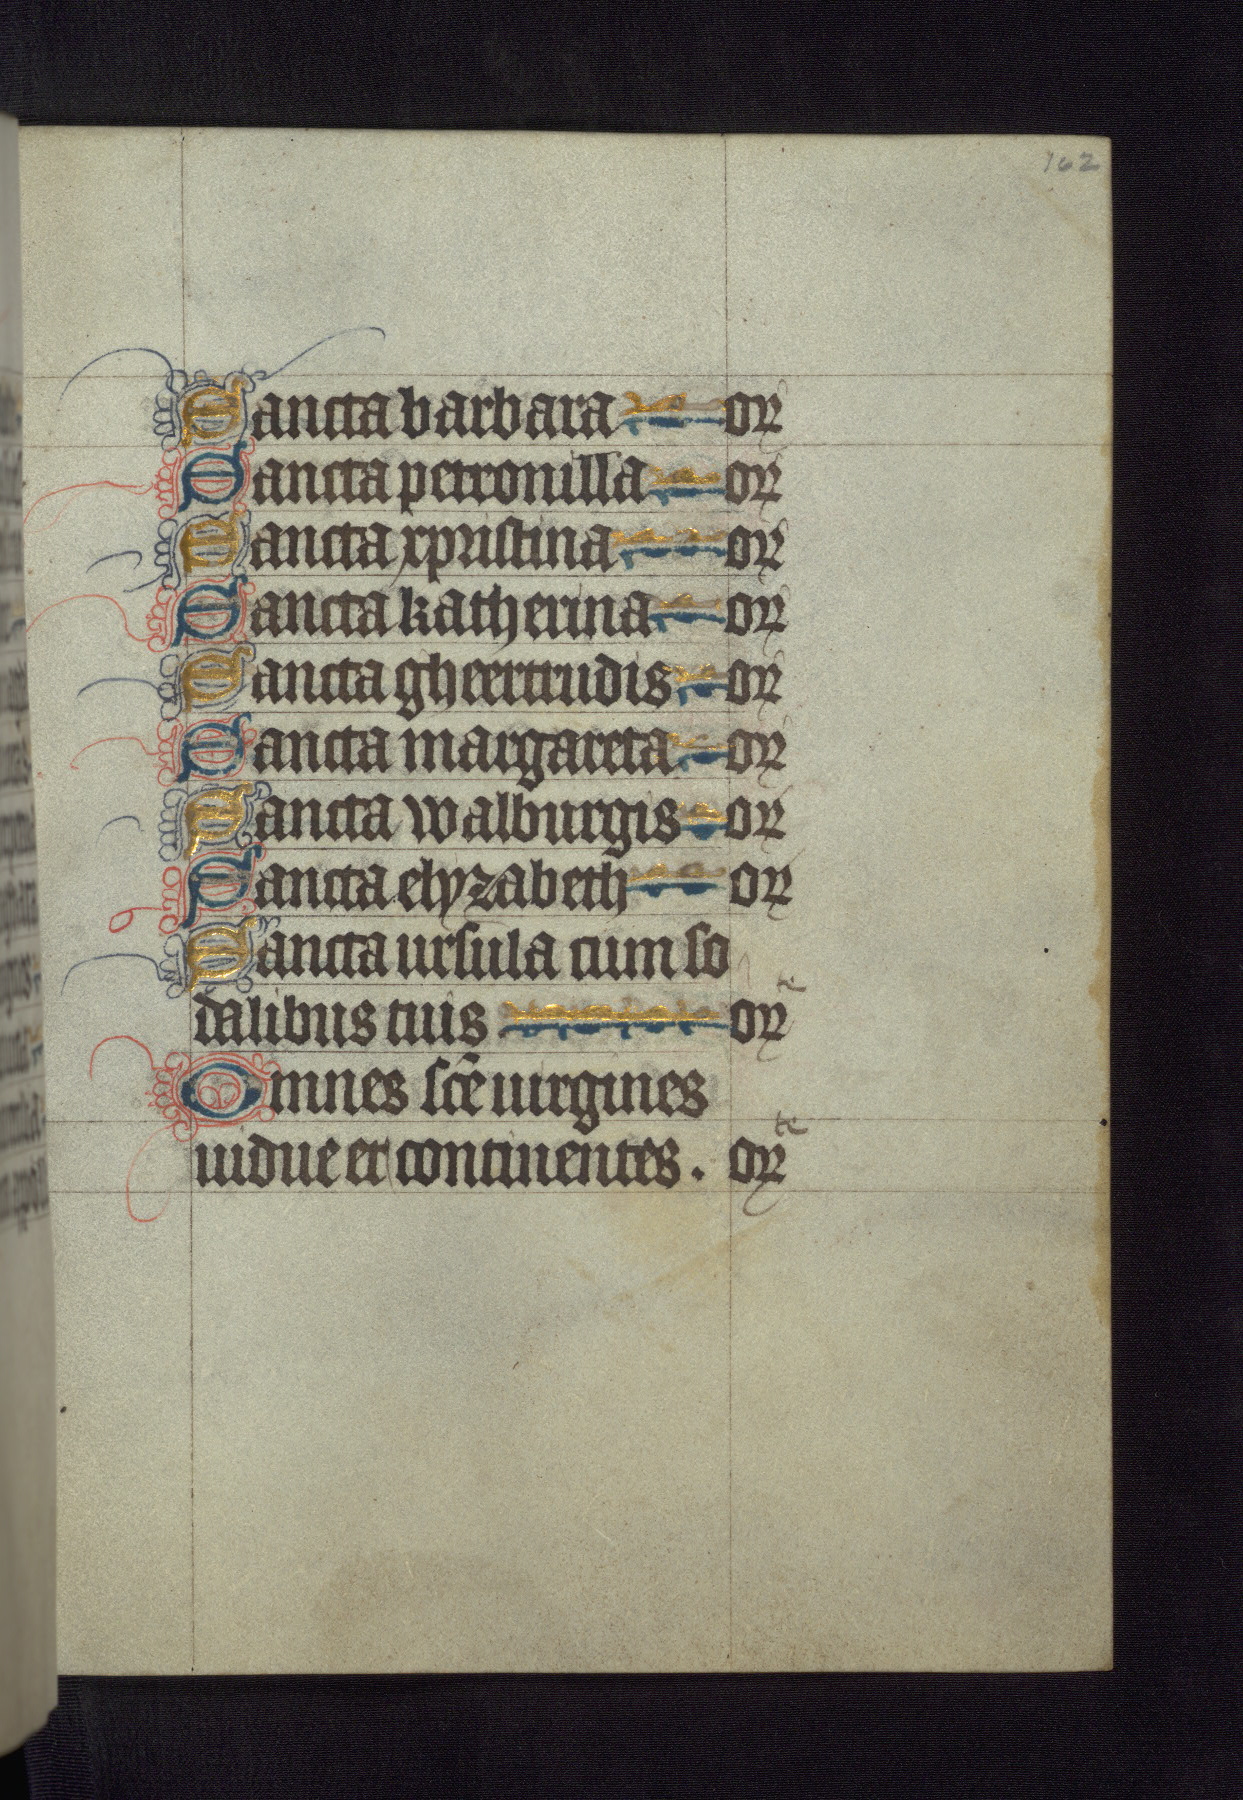 162
Sancta barbara or
Sancta petronilla or
Sancta xpristina or
Sancta katherina or
Sancta gheertrudis or
Sancta margareta or
Sancta walburgis or
Sancta elyzabeth or
Sancta ursula cum so
dalibus tuis orͤ
Omnes sc̄e uirgines
uidue et continentes . orᵗᵉ